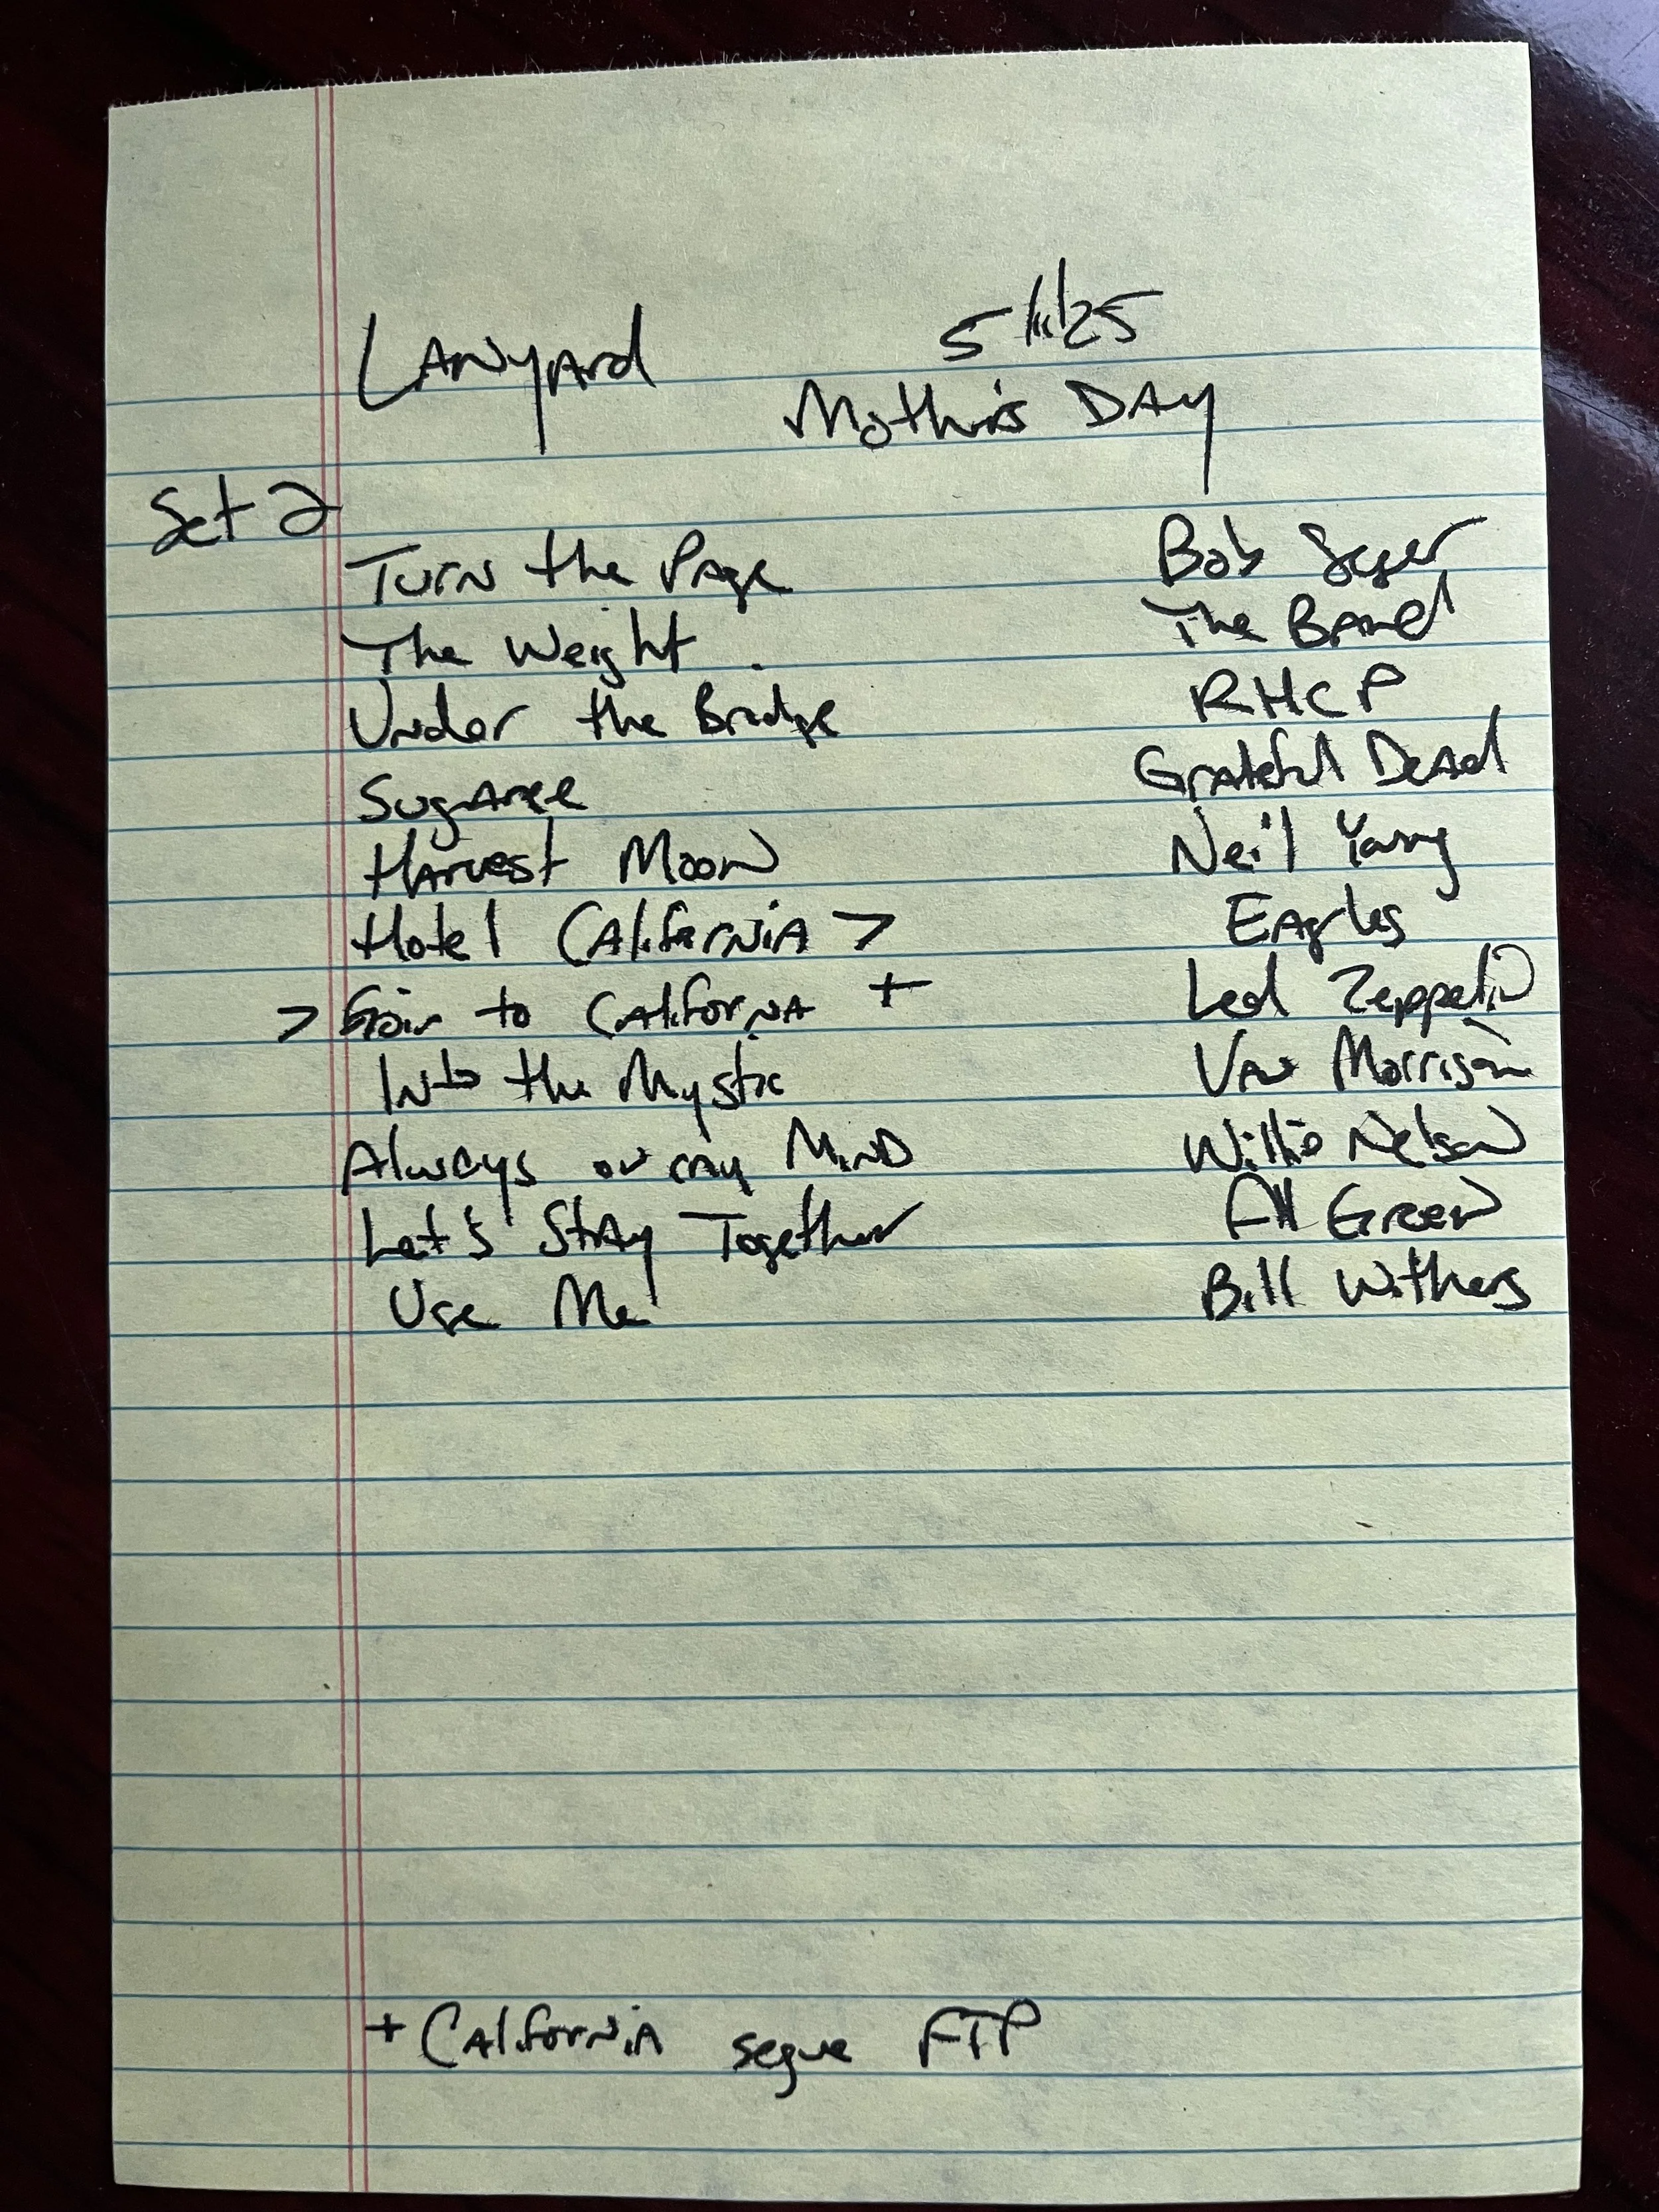 Lanyard 5/11/25
Mother's Day
Set 2
Turn the Page Bob Seger
The Weight The Band
Under the Bridge RHCP
Sugaree Grateful Dead
Harvest Moon Neil Young
Hotel California > Eagles
> Goin to California + Led Zeppelin
Into the Mystic Van Morrison
Always on my Mind Willie Nelson
Let's Stay Together Al Green
Use Me Bill Withers
+ California segue FTP